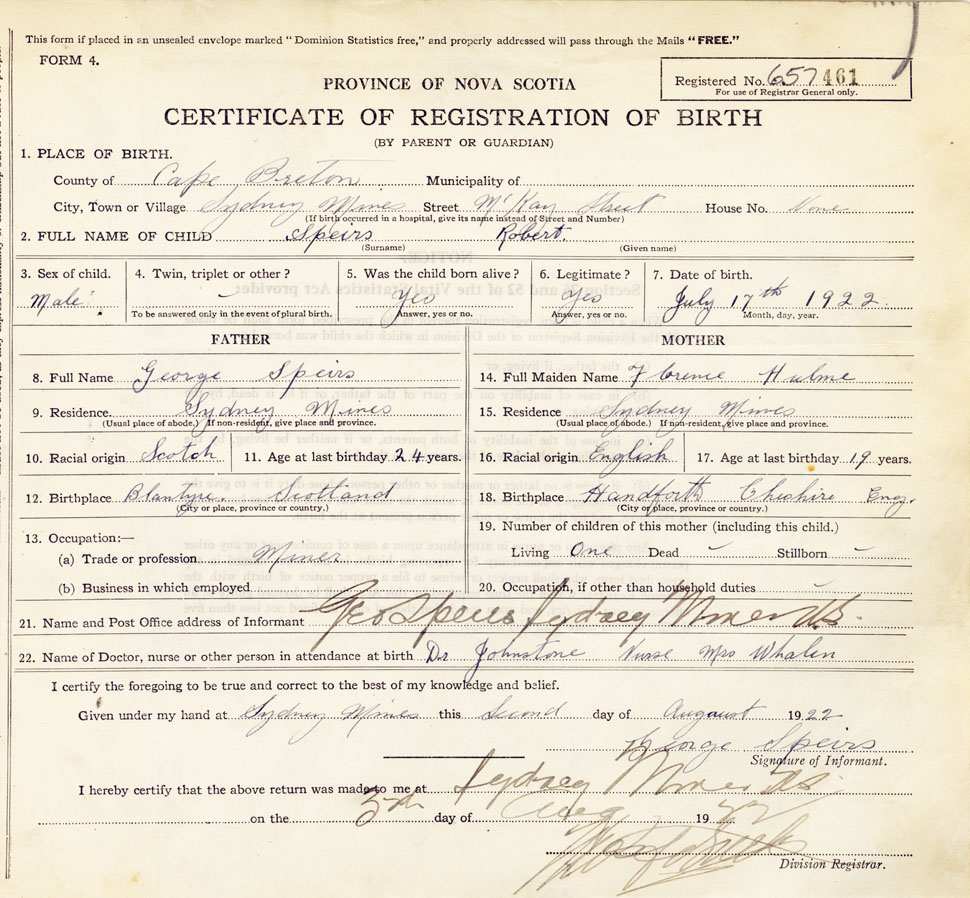 This form if placed in an unsealed envelope marked "Dominion Statistics free," and properly addressed will pass through the Mails "FREE."
FORM 4.
Registered No. 657461
For use of Registrar General only.
PROVINCE OF NOVA SCOTIA
CERTIFICATE OF REGISTRATION OF BIRTH
(BY PARENT OR GUARDIAN)
1. PLACE OF BIRTH.
County of Cape Breton Municipality of
City, Town or Village Sydney Mines Street McKay Street House No. None
(If birth occurred in a hospital, give its name instead of Street and Number)
2. FULL NAME OF CHILD Speirs Robert.
(Surname) (Given name)
3. Sex of child. 4. Twin, triplet or other? 5. Was the child born alive? 6. Legitimate? 7. Date of birth.
Male - Yes Yes July 17th 1922
To be answered only in the event of plural birth. Answer, yes or no. Answer, yes or no. Month, day, year.
FATHER MOTHER
8. Full Name George Speirs 14. Full Maiden Name Florence Hulme
9. Residence. Sydney Mines 15. Residence Sydney Mines
(Usual place of abode.) If non-resident, give place and province. (Usual place of abode.) If non-resident, give place and province.
10. Racial origin Scotch 11. Age at last birthday 24 years. 16. Racial origin English 17. Age at last birthday 19 years.
12. Birthplace Blantyre. Scotland 18. Birthplace Handforth Cheshire Eng.
(City or place, province or country.) (City or place, province or country.)
19. Number of children of this mother (including this child.)
13. Occupation:—
Living One Dead - Stillborn -
(a) Trade or profession Miner
(b) Business in which employed 20. Occupation, if other than household duties -
21. Name and Post Office address of Informant Geo Speirs Sydney Mines N.S.
22. Name of Doctor, nurse or other person in attendance at birth Dr Johnstone Nurse Mrs Whalen
I certify the foregoing to be true and correct to the best of my knowledge and belief.
Given under my hand at Sydney Mines this Second day of Augaust 1922
George Speirs
Signature of Informant.
I hereby certify that the above return was made to me at Sydney Mines N.S.
on the 5th day of Aug 1922
Division Registrar.